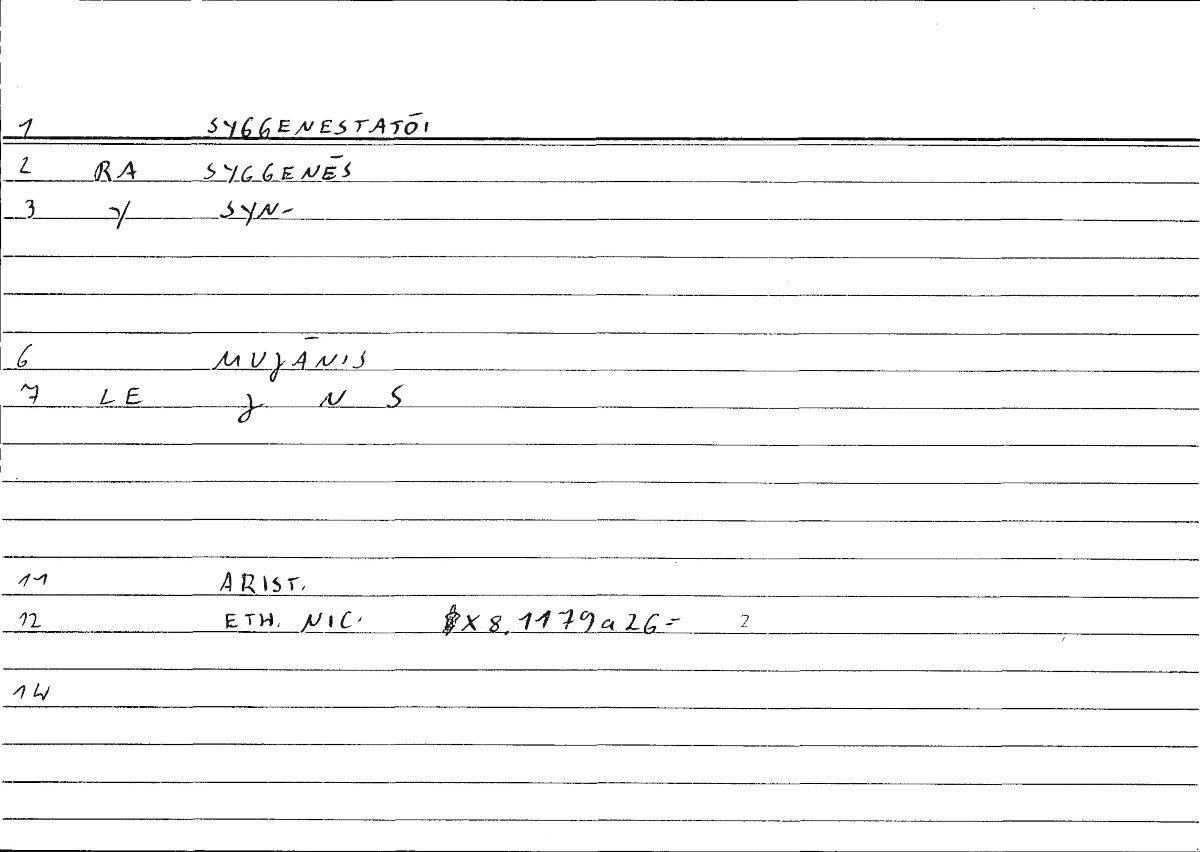 1 SYGGENESTATŌI
2 RA SYGGENĒS
3 γ SYN-
6 MUǧĀNIS
7 LE ǧ N S
11 ARIST.
12 ETH. NIC. X 8. 1179a26= ?
14